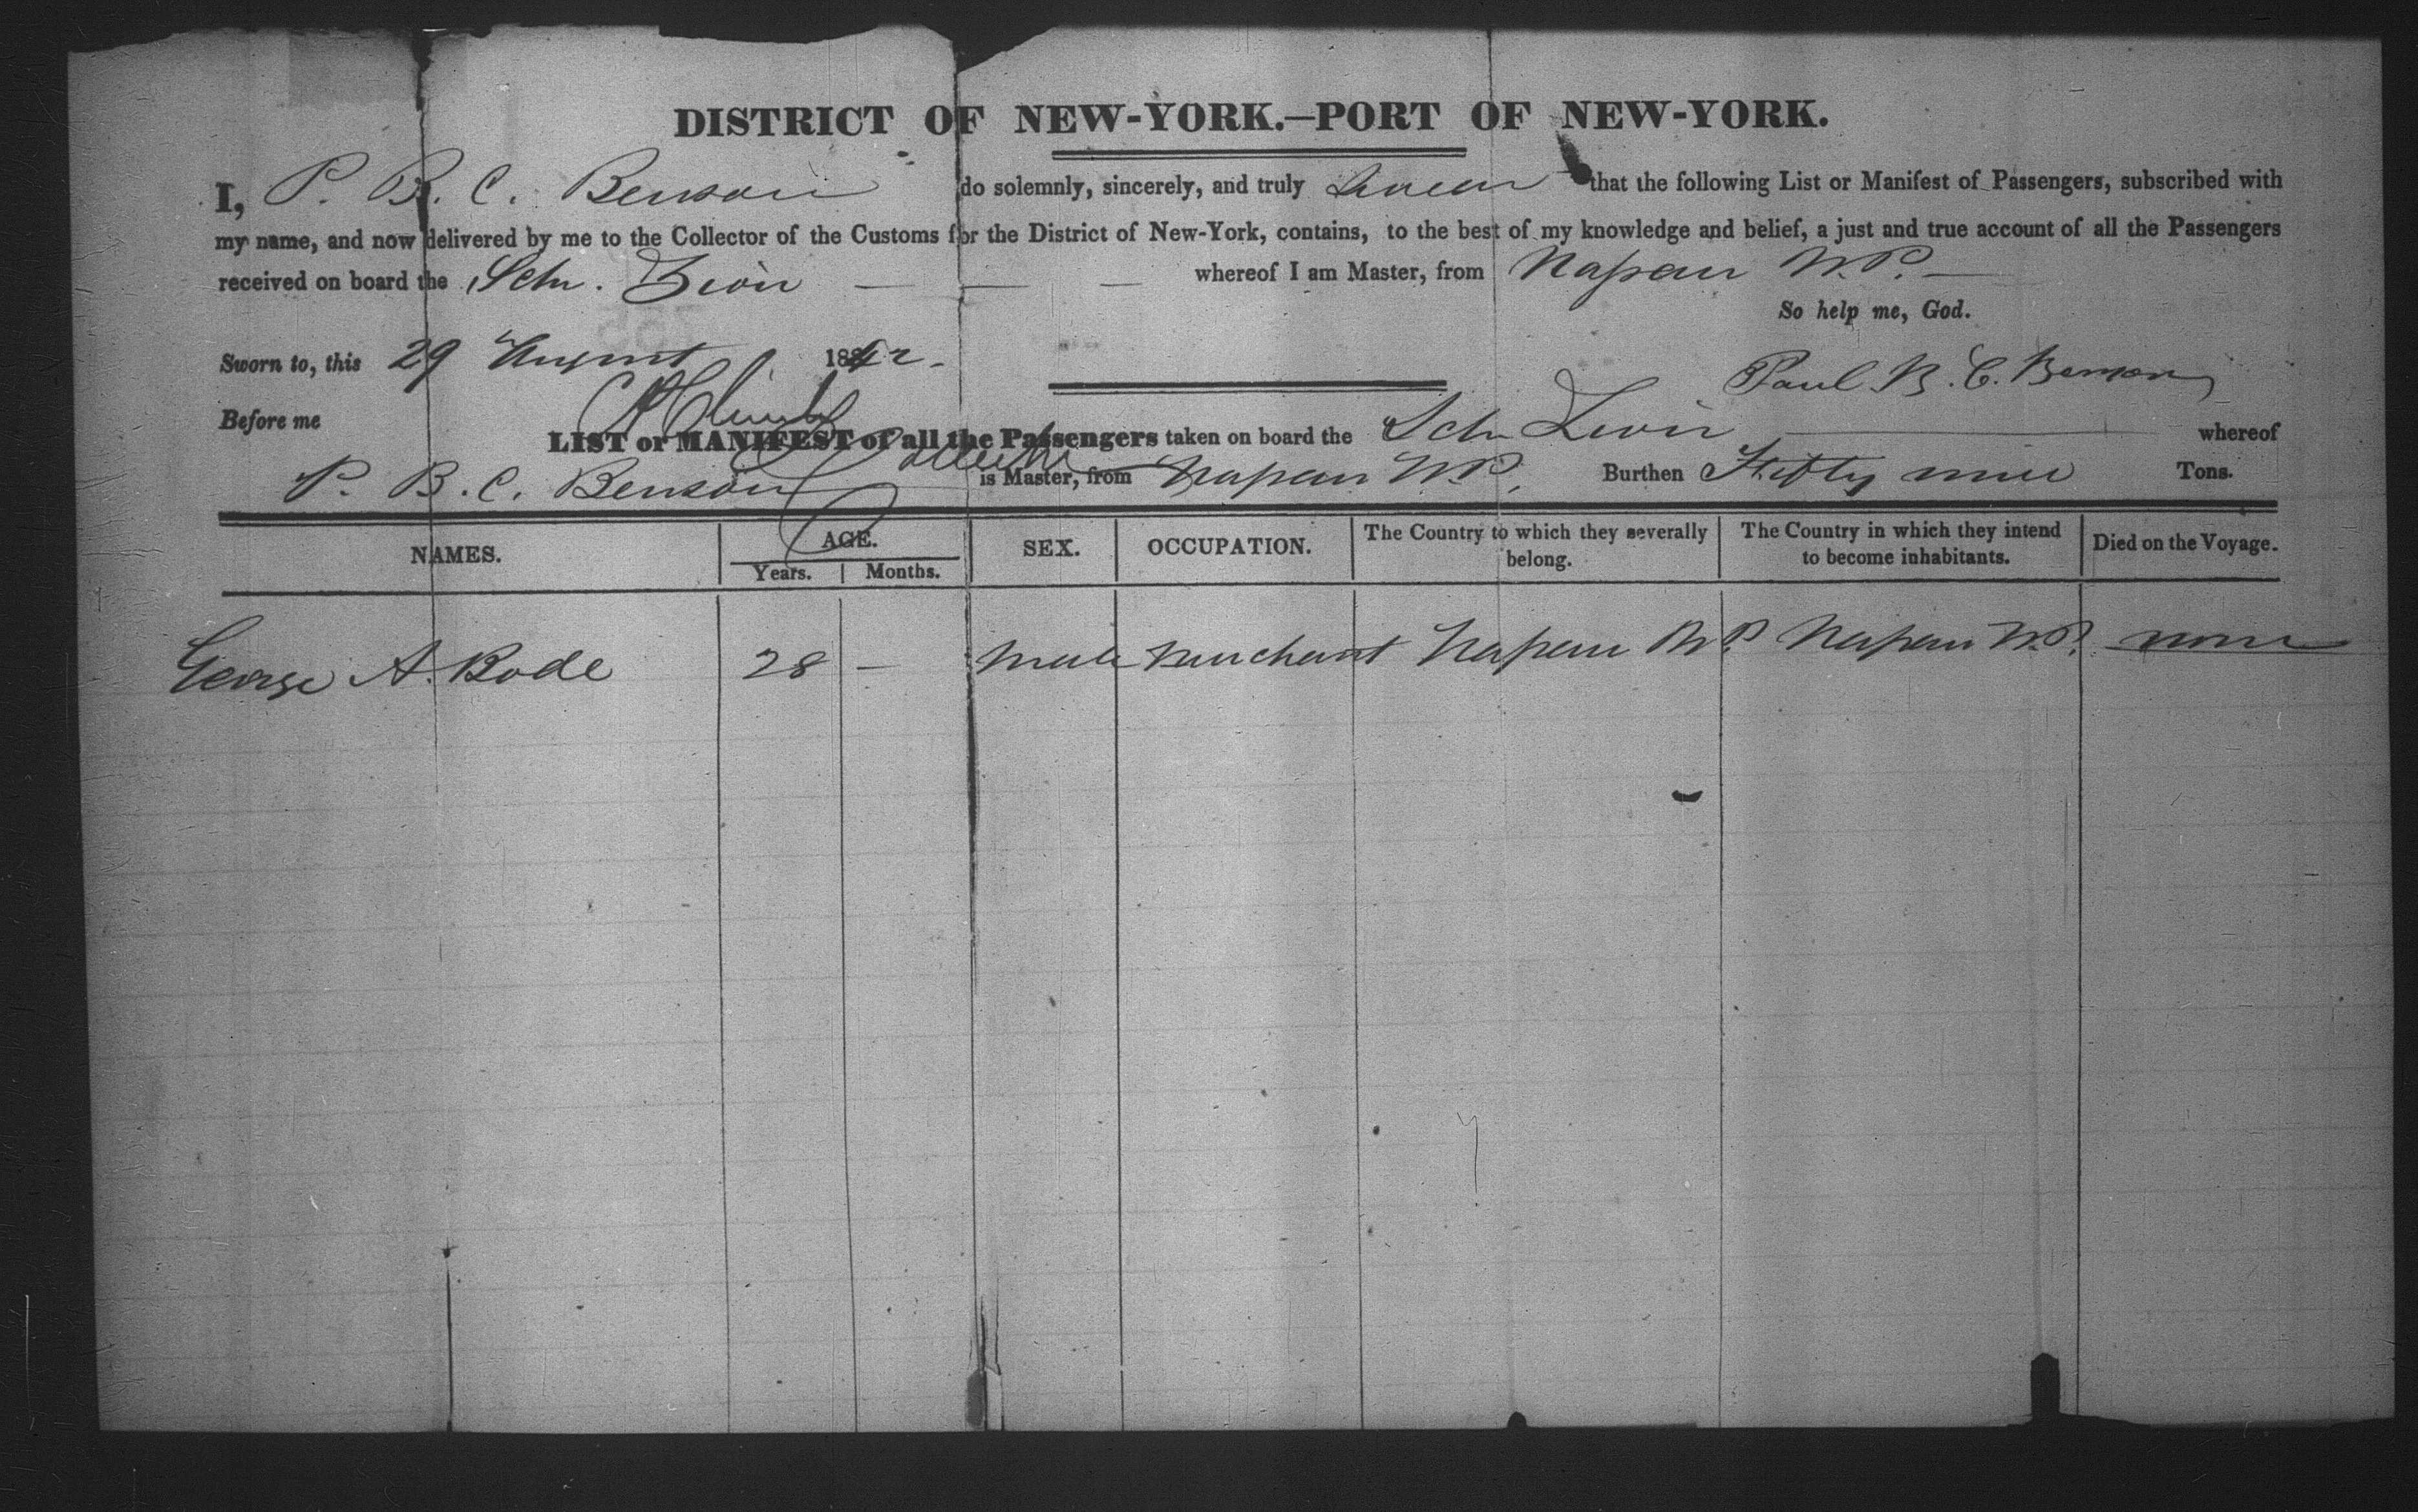 DISTRICT OF NEW-YORK.—PORT OF NEW-YORK.
I, P. B. C. Benson do solemnly, sincerely, and truly swear that the following List or Manifest of Passengers, subscribed with
my name, and now delivered by me to the Collector of the Customs for the District of New-York, contains, to the best of my knowledge and belief, a just and true account of all the Passengers
received on board the Schr. whereof I am Master, from Nassau N.P.
So help me, God.
Sworn to, this 29 August 1842.
Paul B. C. Benson
Before me
LIST or MANIFEST of all the Passengers taken on board the Schr whereof
P. B. C. Benson is Master, from Nassau N.P. Burthen Fifty nine Tons.
NAMES. AGE. SEX. OCCUPATION. The Country to which they severally belong. The Country in which they intend to become inhabitants. Died on the Voyage.
Years. Months.
George A. Rode 28 — Male Merchant Nassau N.P. Nassau N.P. none